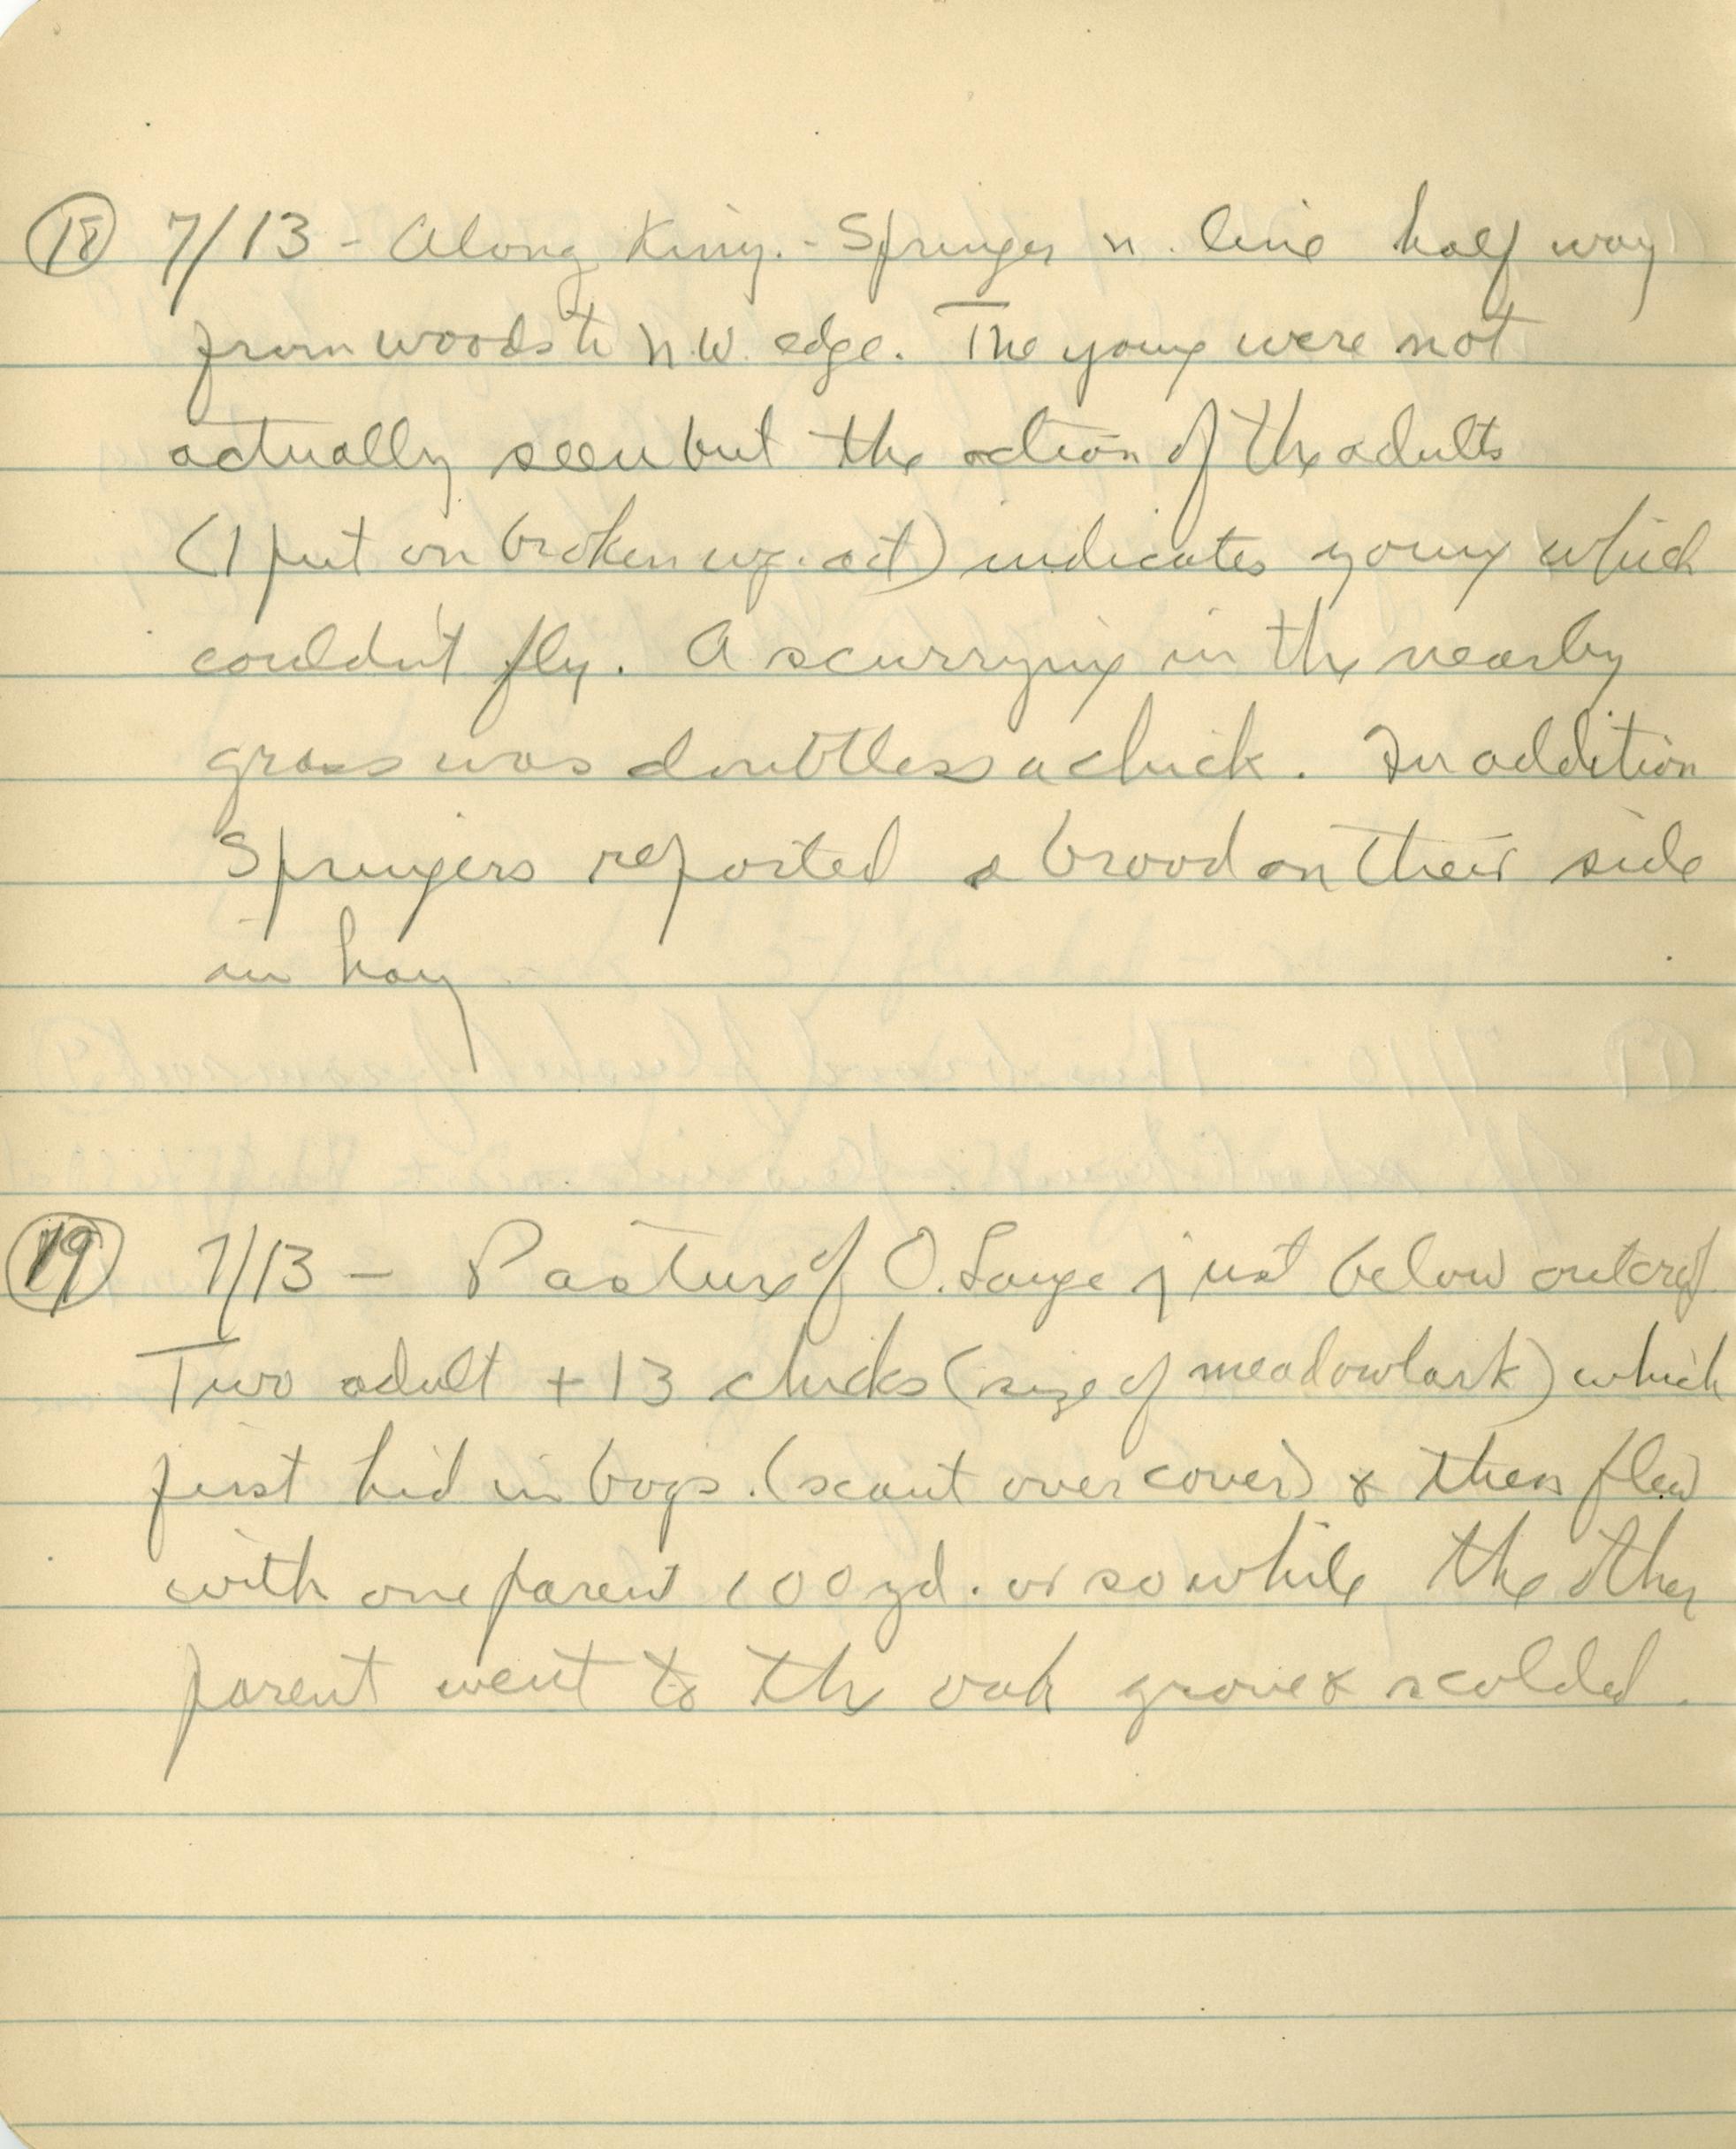 18 7/13 - Along King. - Springer n. line half way
from woods to N.W. edge. The young were not
actually seen but the action of the adults
(1 put on broken wg. act) indicates young which
couldn't fly. A scurrying in the nearby
grass was doubtless a chick. In addition
Springers reported a brood on their side
in hay
19 7/13 - Pasture of O. Lange just below outcrop
Two adult + 13 chicks (size of meadowlark) which
first hid in bogs. (scant over cover) & then flew
with one parent 100 yd. or so while the other
parent went to the oak grove & scolded.